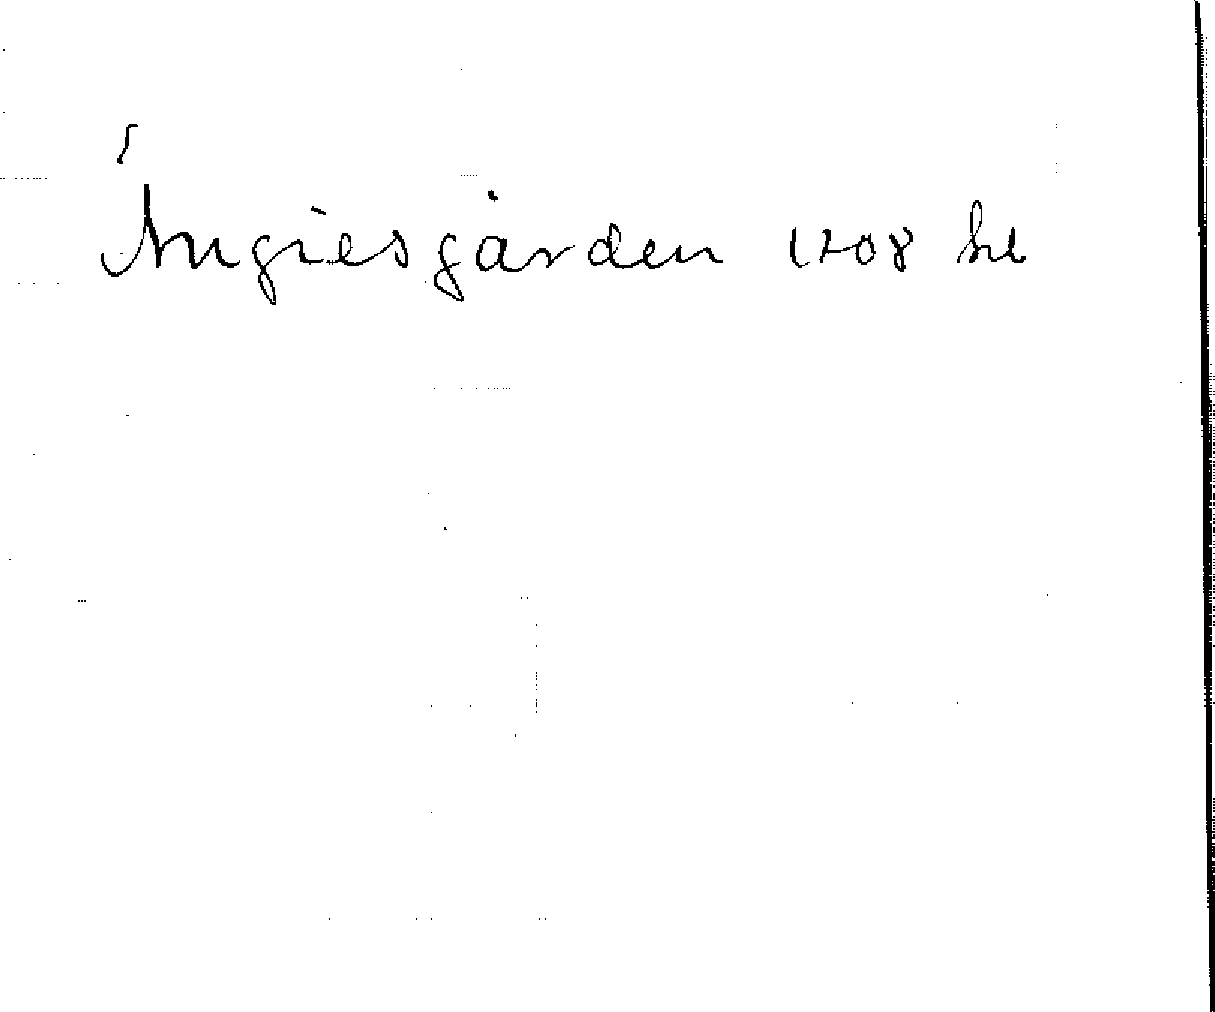 Angiesgården 1708 hl